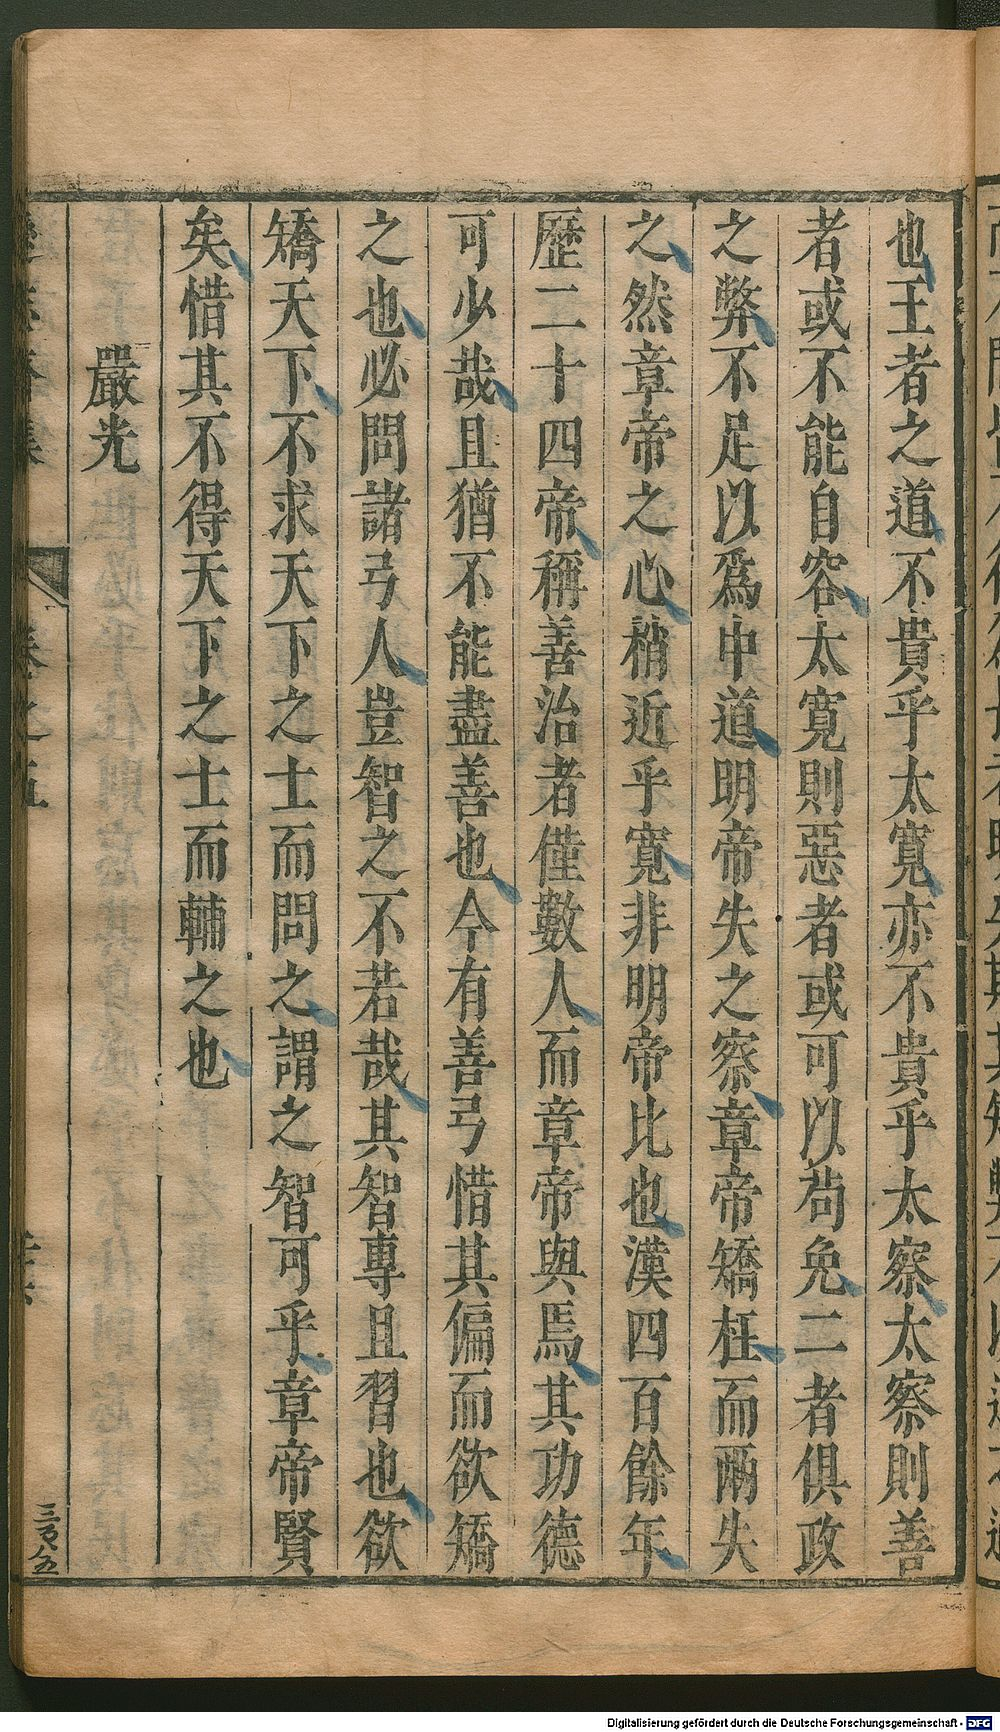 也王者之道不貴乎太寬亦不貴乎太察太察則善
者或不能自容太寬則惡者或可以茍免二者俱政
之弊不足以爲中道明帝失之察章帝矯枉而兩失
之然章帝之心稍近乎寬非明帝比也漢四百餘年
歷二十四帝稱善治者僅數人而章帝與焉其功德
可少哉且猶不能盡善也今有善弓惜其偏而欲矯
之也必問諸弓人豈智之不若哉其智專且習也欲
矯天下不求天下之士而問之謂之智可乎章帝賢
矣惜其不得天下之士而輔之也
嚴光
卷之五
三百八五
Digitalisierung gefördert durch die Deutsche Forschungsgemeinschaft - DFG